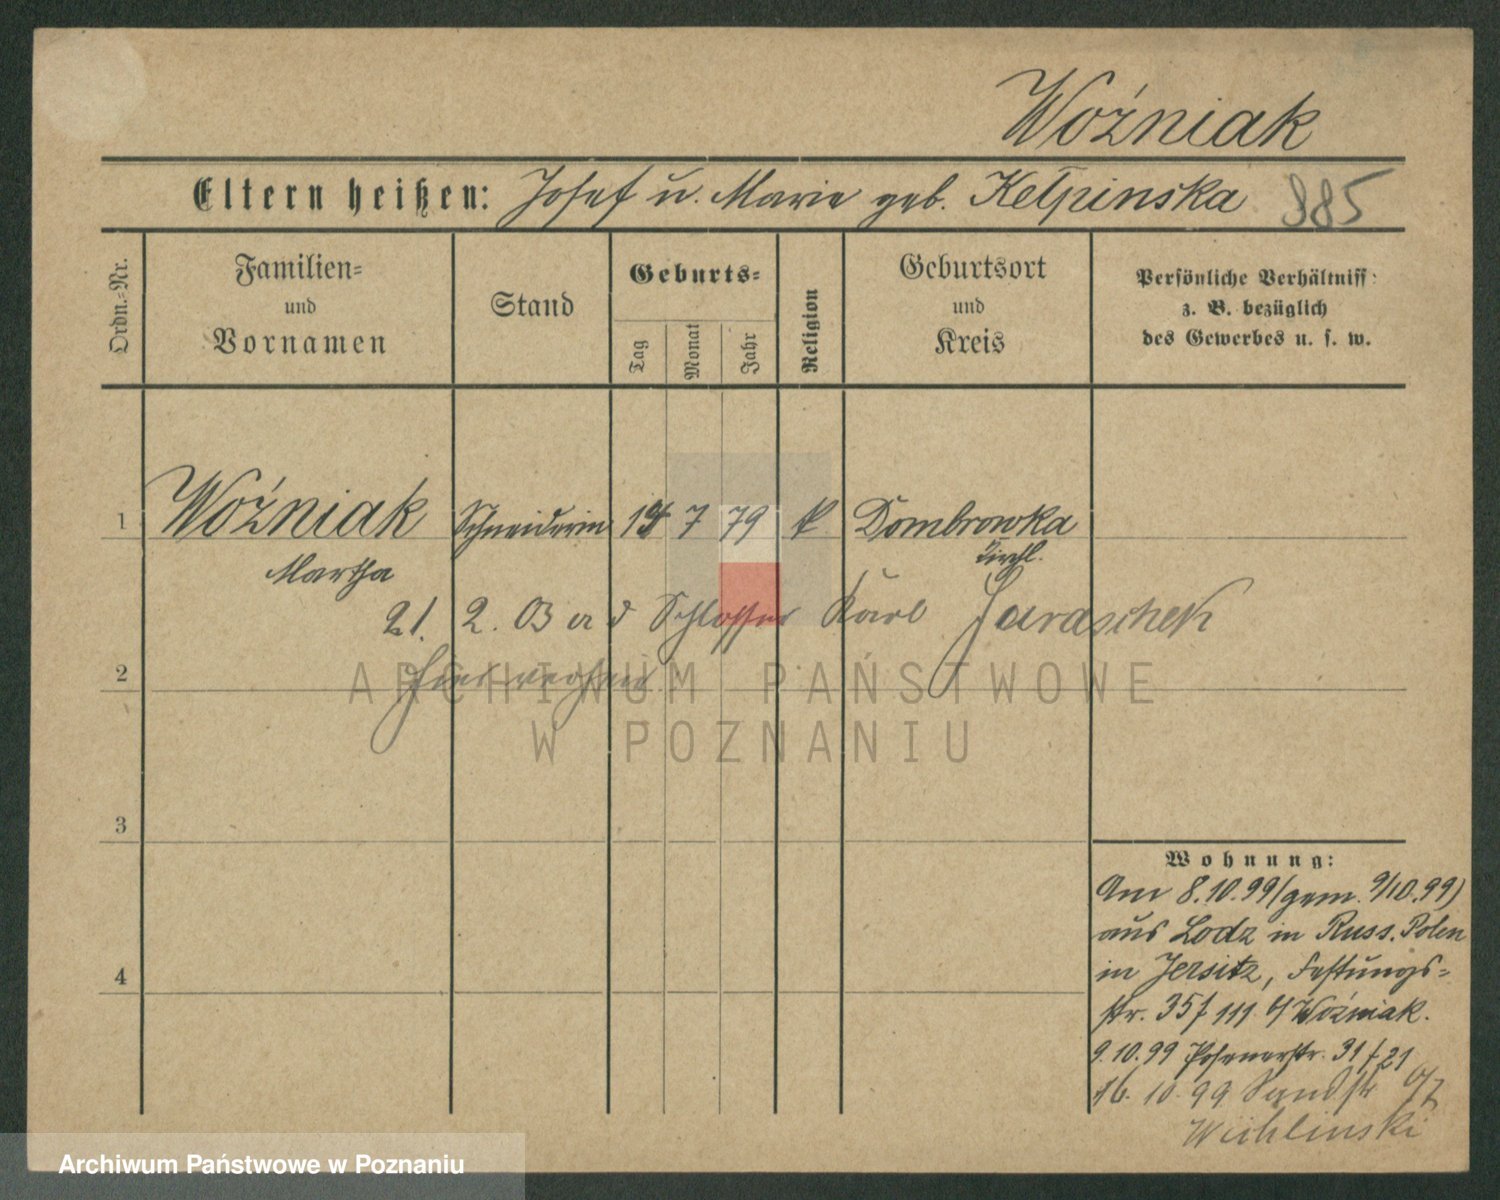 Woźniak
Eltern heißen: Josef u. Marie geb. Kełpinska 885
Ordn.=Nr.
Familien=
und
Vornamen
Stand
Geburts=
Tag
Monat
Jahr
Religion
Geburtsort
und
Kreis
Persönliche Verhältniss:
z. B. bezüglich
des Gewerbes u. s. w.
1 Woźniak Schneiderin 7 79 k Dombrowka
Martha kirchl.
21. 2. 03 a d Schlosser Karl Jaraschek
2 hier
3
4
Wohnung:
Am 8.10.99 (gem. 9/10.99)
aus Lodz in Russ. Polen
in Jersitz, Festungs=
str. 35 f 111 b/ Woźniak.
9.10.99 Posenerstr. 31 f 21
16. 10. 99
ARCHIWUM PAŃSTWOWE
W POZNANIU
Archiwum Państwowe w Poznaniu